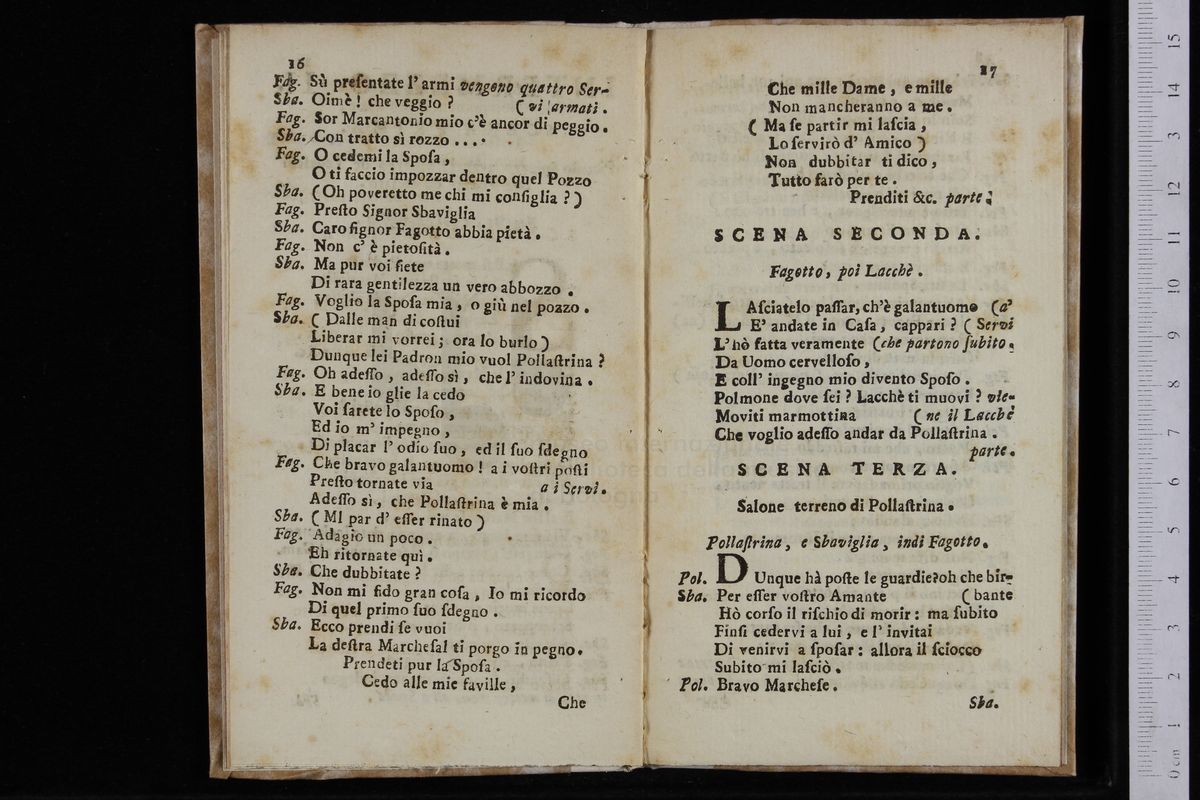 16
Fag. Sù preſentate l' armi vengono quattro Ser-
Sba. Oimè ! che veggio ? ( vi armati .
Fag. Sor Marcantonio mio c'è ancor di peggio .
Sba. Con tratto sì rozzo ....
Fag. O cedemi la Spoſa ,
O ti faccio impozzar dentro quel Pozzo
Sba. ( Oh poveretto me chi mi conſiglia ? )
Fag. Preſto Signor Sbaviglia
Sba. Caro ſignor Fagotto abbia pietà .
Fag. Non c' è pietoſità .
Sba. Ma pur voi ſiete
Di rara gentilezza un vero abbozzo .
Fag. Voglio la Spoſa mia , o giù nel pozzo .
Sba. ( Dalle man di coſtui
Liberar mi vorrei ; ora lo burlo )
Dunque lei Padron mio vuol Pollaſtrina ?
Fag. Oh adeſſo , adeſſo sì , che l' indovina .
Sba. E bene io glie la cedo
Voi ſarete lo Spoſo ,
Ed io m' impegno ,
Di placar l' odio ſuo , ed il ſuo ſdegno
Fag. Che bravo galantuomo ! a i voſtri poſti
Preſto tornate via a i Servi .
Adeſſo sì , che Pollaſtrina è mia .
Sba. ( MI par d' eſſer rinato )
Fag. Adagio un poco .
Eh ritornate quì .
Sba. Che dubbitate ?
Fag. Non mi fido gran coſa , Io mi ricordo
Di quel primo ſuo ſdegno .
Sba. Ecco prendi ſe vuoi
La deſtra Marcheſal ti porgo in pegno .
Prendeti pur la Spoſa .
Cedo alle mie faville ,
Che
17
Che mille Dame , e mille
Non mancheranno a me .
( Ma ſe partir mi laſcia ,
Lo ſervirò d' Amico )
Non dubbitar ti dico ,
Tutto farò per te .
Prenditi &c. parte .
SCENA SECONDA.
Fagotto, poi Lacchè .
LAſciatelo paſſar, ch'è galantuomo (a'
E' andate in Caſa , cappari ? ( Servi
L' hò fatta veramente (che partono ſubito .
Da Uomo cervelloſo ,
E coll' ingegno mio divento Spoſo .
Polmone dove ſei ? Lacchè ti muovi ? vie-
Moviti marmottina ( ne il Lacchè
Che voglio adeſſo andar da Pollaſtrina .
parte .
SCENA TERZA.
Salone terreno di Pollaſtrina .
Pollaſtrina, e Sbaviglia, indi Fagotto .
Pol. DUnque hà poſte le guardie?oh che bir-
Sba. Per eſſer voſtro Amante ( bante
Hò corſo il riſchio di morir : ma ſubito
Finſi cedervi a lui , e l' invitai
Di venirvi a ſpoſar : allora il ſciocco
Subito mi laſciò .
Pol. Bravo Marcheſe .
Sba.
0 cm 1 2 3 4 5 6 7 8 9 10 11 12 13 14 15